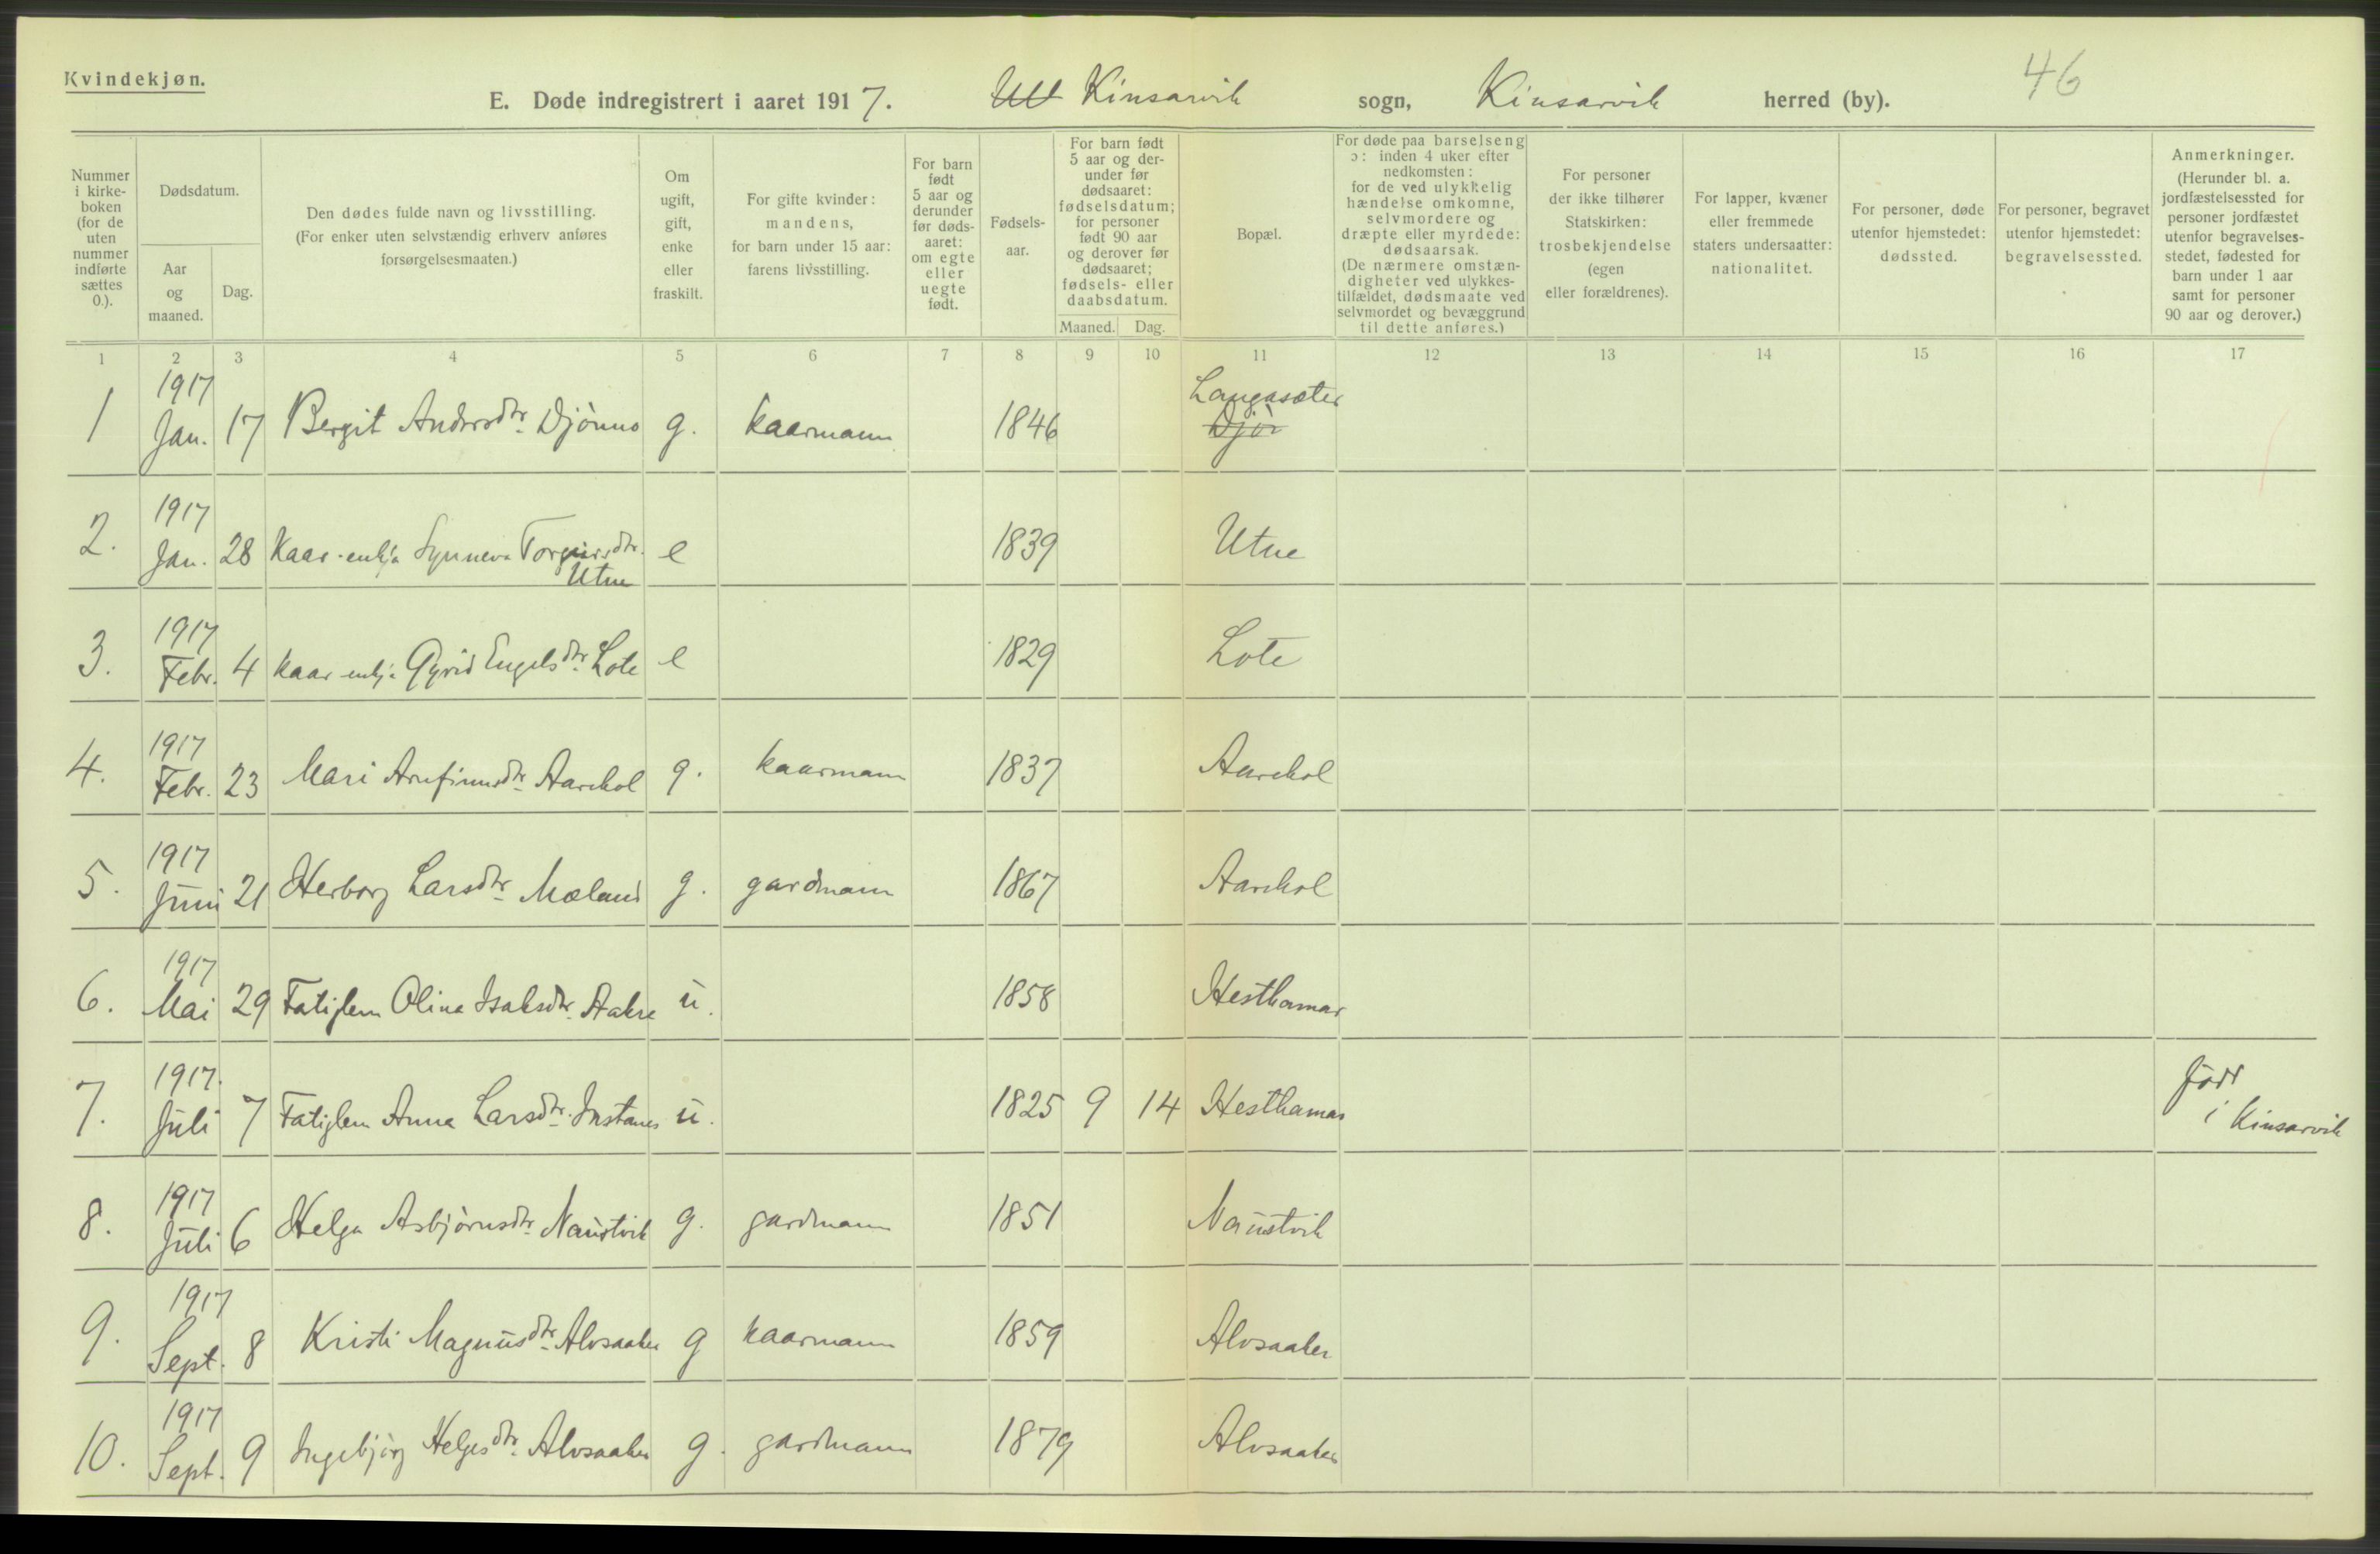 Kvindekjøn.
46
E. Døde indregistrert i aaret 1917. Kinsarvik sogn, Kinsarvik herred (by).
Nummer i kirke-boken (for de uten nummer indførte sættes 0.).
Dødsdatum.
Aar og maaned.
Dag.
Den dødes fulde navn og livsstilling.
(For enker uten selvstændig erhverv anføres
forsørgelsesmaaten.)
Om ugift, gift, enke eller fraskilt.
For gifte kvinder:
mandens,
for barn under 15 aar:
farens livsstilling.
For barn født 5 aar og derunder før døds-aaret: om egte eller uegte født.
Fødsels-aar.
For barn født 5 aar og der-under før dødsaaret: fødselsdatum; for personer født 90 aar og derover før dødsaaret; fødsels- eller daabsdatum.
Maaned.
Dag.
Bopæl.
For døde paa barselseng
ɔ: inden 4 uker efter
nedkomsten:
for de ved ulykkelig
hændelse omkomne,
selvmordere og
dræpte eller myrdede:
dødsaarsak.
(De nærmere omstæn-
digheter ved ulykkes-
tilfældet, dødsmaate ved
selvmordet og bevæggrund
til dette anføres.)
For personer
der ikke tilhører
Statskirken:
trosbekjendelse
(egen
eller forældrenes).
For lapper, kvæner
eller fremmede
staters undersaatter:
nationalitet.
For personer, døde
utenfor hjemstedet:
dødssted.
For personer, begravet
utenfor hjemstedet:
begravelsessted.
Anmerkninger.
(Herunder bl. a.
jordfæstelsessted for
personer jordfæstet
utenfor begravelses-
stedet, fødested for
barn under 1 aar
samt for personer
90 aar og derover.)
1 2 3 4 5 6 7 8 9 10 11 12 13 14 15 16 17
1917 Langasæter
1 Jan. 17 Bergit Andersdtr. Djønno g. kaarmann 1846 Djø
1917
2. Jan. 28 Kaar-enkja Synneva Torgeirsdtr. e 1839 Utne
Utne
1917
3. Febr. 4 kaar enkja Gyrid Engelsdtr. Lote e 1829 Lote
1917
4. Febr. 23 Mari Arnfinnsdtr. Aarekol g. kaarmann 1837 Aarekol
1917
5. Juni 21 Herborg Larsdtr. Mæland g. gardmann 1867 Aarekol
1917
6. Mai 29 Fatiglem Olina Isaksdtr. Aakre u. 1858 Hesthamar
1917. født
7. Juli 7 Fatiglem Anna Larsdtr. Instanes u. 1825 9 14 Hesthamar i Kinsarvik
1917
8. Juli 6 Helga Asbjørnsdtr. Naustvik g. gardmann 1851 Naustvik
1917
9. Sept. 8 Kristi Magnusdtr. Alvsaaker g kaarmann 1859 Alvsaaker
1917
10. Sept. 9 Ingebjørg Helgesdtr. Alvsaaker g. gardmann 1879 Alvsaaker